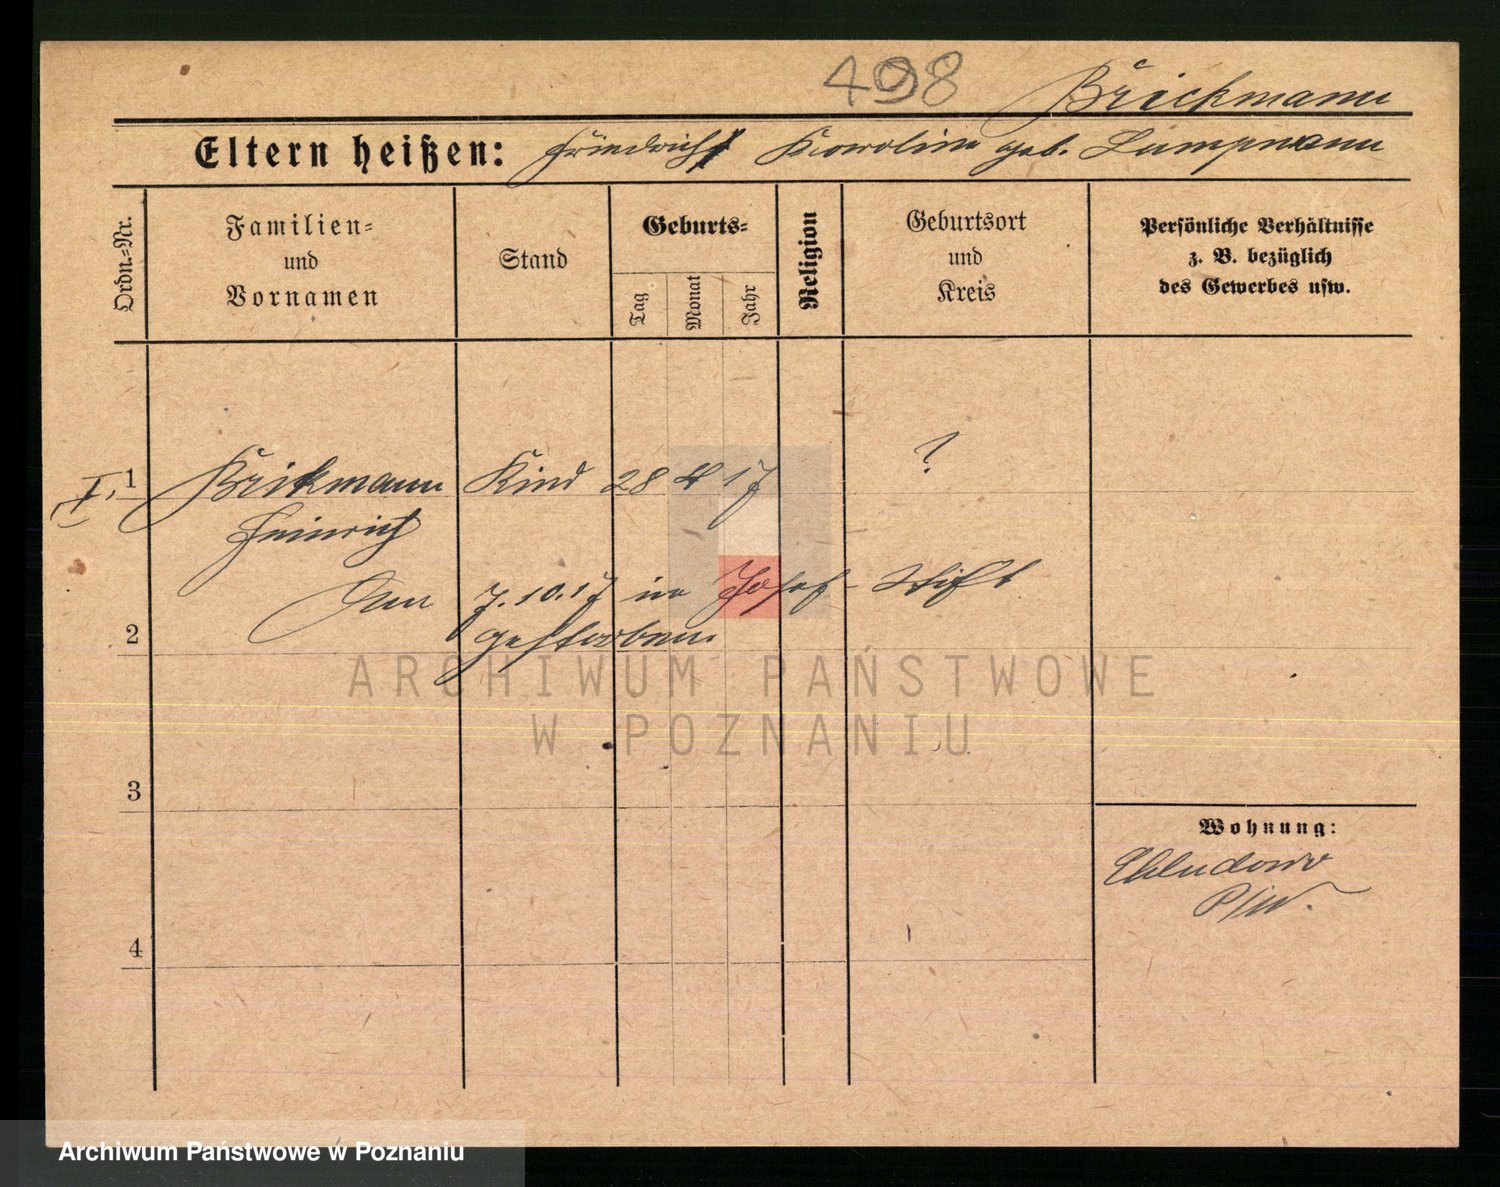 498 Brickmann
Eltern heißen: Friedrich Karolin geb. Lampmann
Ordn.-Nr.
Familien-
und
Vornamen
Stand
Geburts-
Tag
Monat
Jahr
Religion
Geburtsort
und
Kreis
Persönliche Verhältnisse
z. B. bezüglich
des Gewerbes usw.
I. 1 Brikmann Kind 28 4 17 ?
Heinrich
Am 7.10.17 in Josef-Stift
2 gestorben.
ARCHIWUM PAŃSTWOWE
W POZNANIU
3
Wohnung:
Chludowo
4
Archiwum Państwowe w Poznaniu